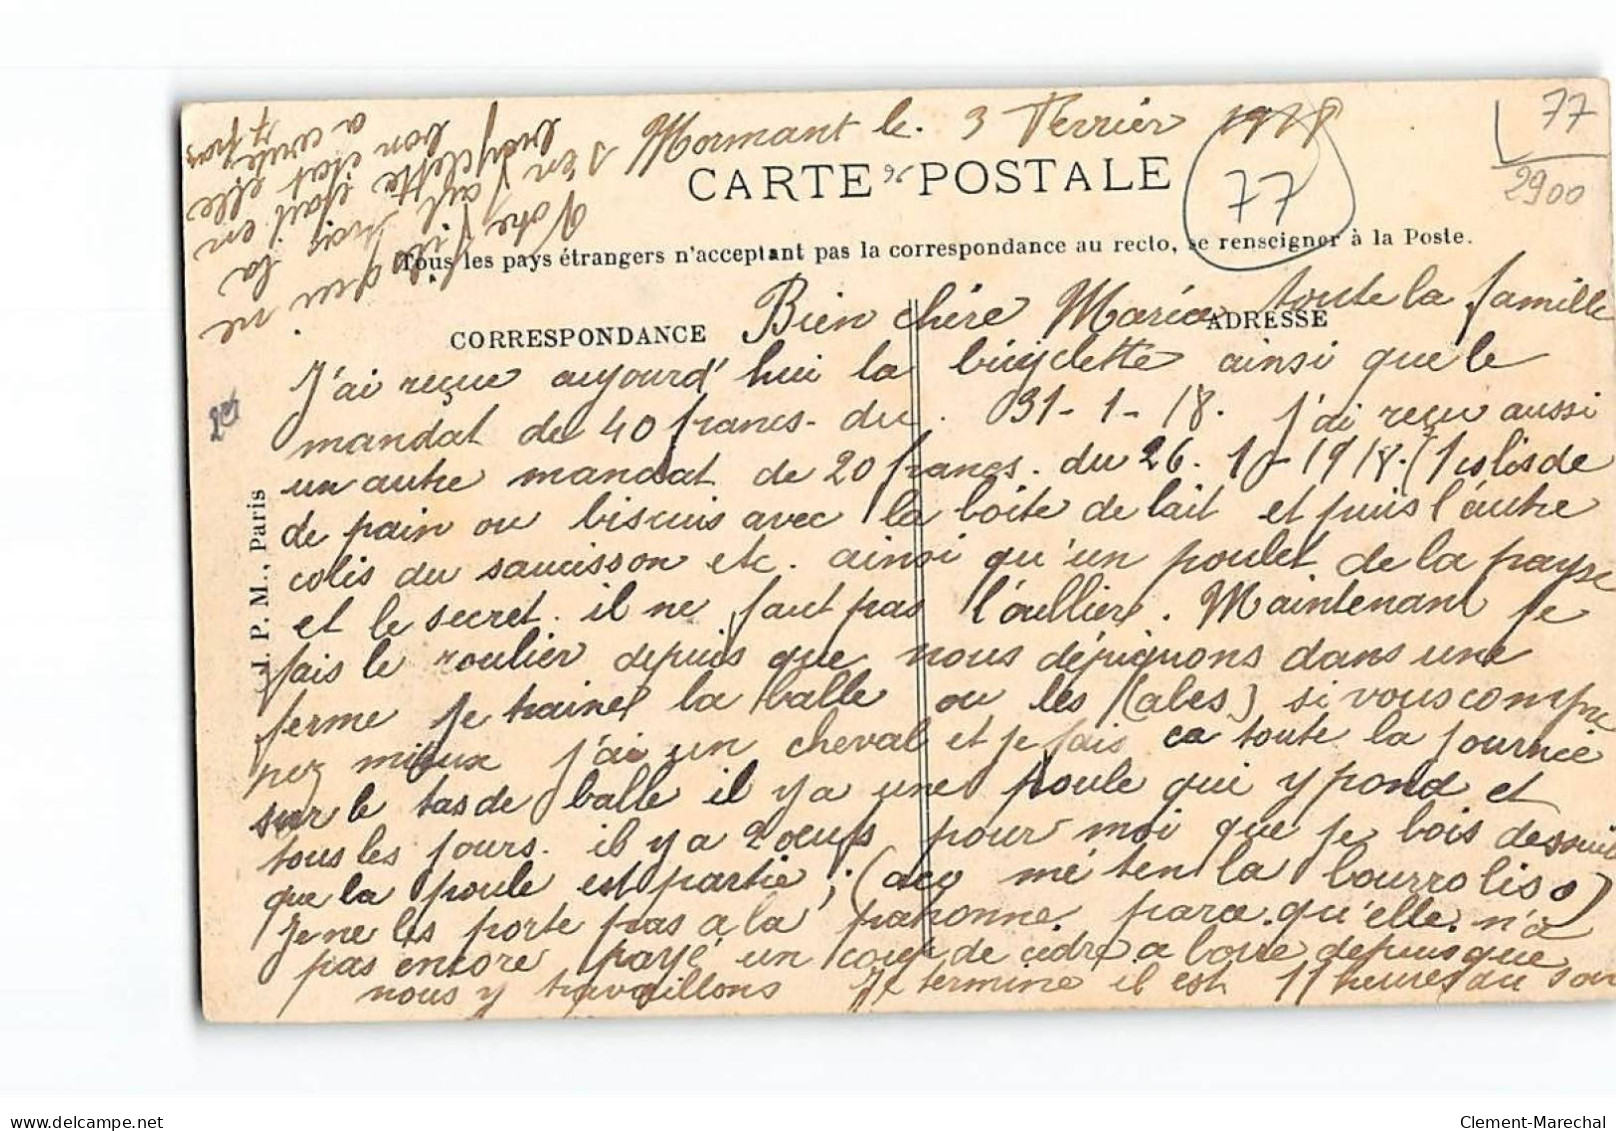 Mormant le. 3 Fevrier 1918
77
2900
77
CARTE POSTALE
Tous les pays étrangers n'acceptent pas la correspondance au recto, se renseigner à la Poste.
CORRESPONDANCE
ADRESSE
Bien chére Maria toute la famille
J'ai reçue aujourd'hui la biciyclette ainsi que le
mandat de 40 francs. du. 31-1-18. J'ai reçu aussi
un autre mandat de 20 francs. du 26. 1-1918. (1 colis de
de pain ou biscuis avec la boite de lait et puis l'autre
colis du saucisson etc. ainsi qu'un poulet de la payse
et le secret. il ne faut pas l'oullier. Maintenant je
fais le roulier depuis que nous dépiquons dans une
ferme je traine la balle ou les (abes) si vous compre
nez mieux j'ai un cheval et je fais ca toute la journée
sur le tas de balle il y a une poule qui y pond et
tous les jours. il y a 2 oeufs pour moi que je bois de suite
que la poule est partie; (aco mé ten la bourrolis)
Je ne les porte pas a la patronne parce. qu'elle. n'a
pas encore payé un coup de cidre a boire depuis que
nous y travaillons Je termine il est 11 heures du soir
Votre fils qui ne
s'en fait pas la
bicyclette était en
bon état elle
a
J. P. M., Paris
delcampe.net
Clement-Marechal